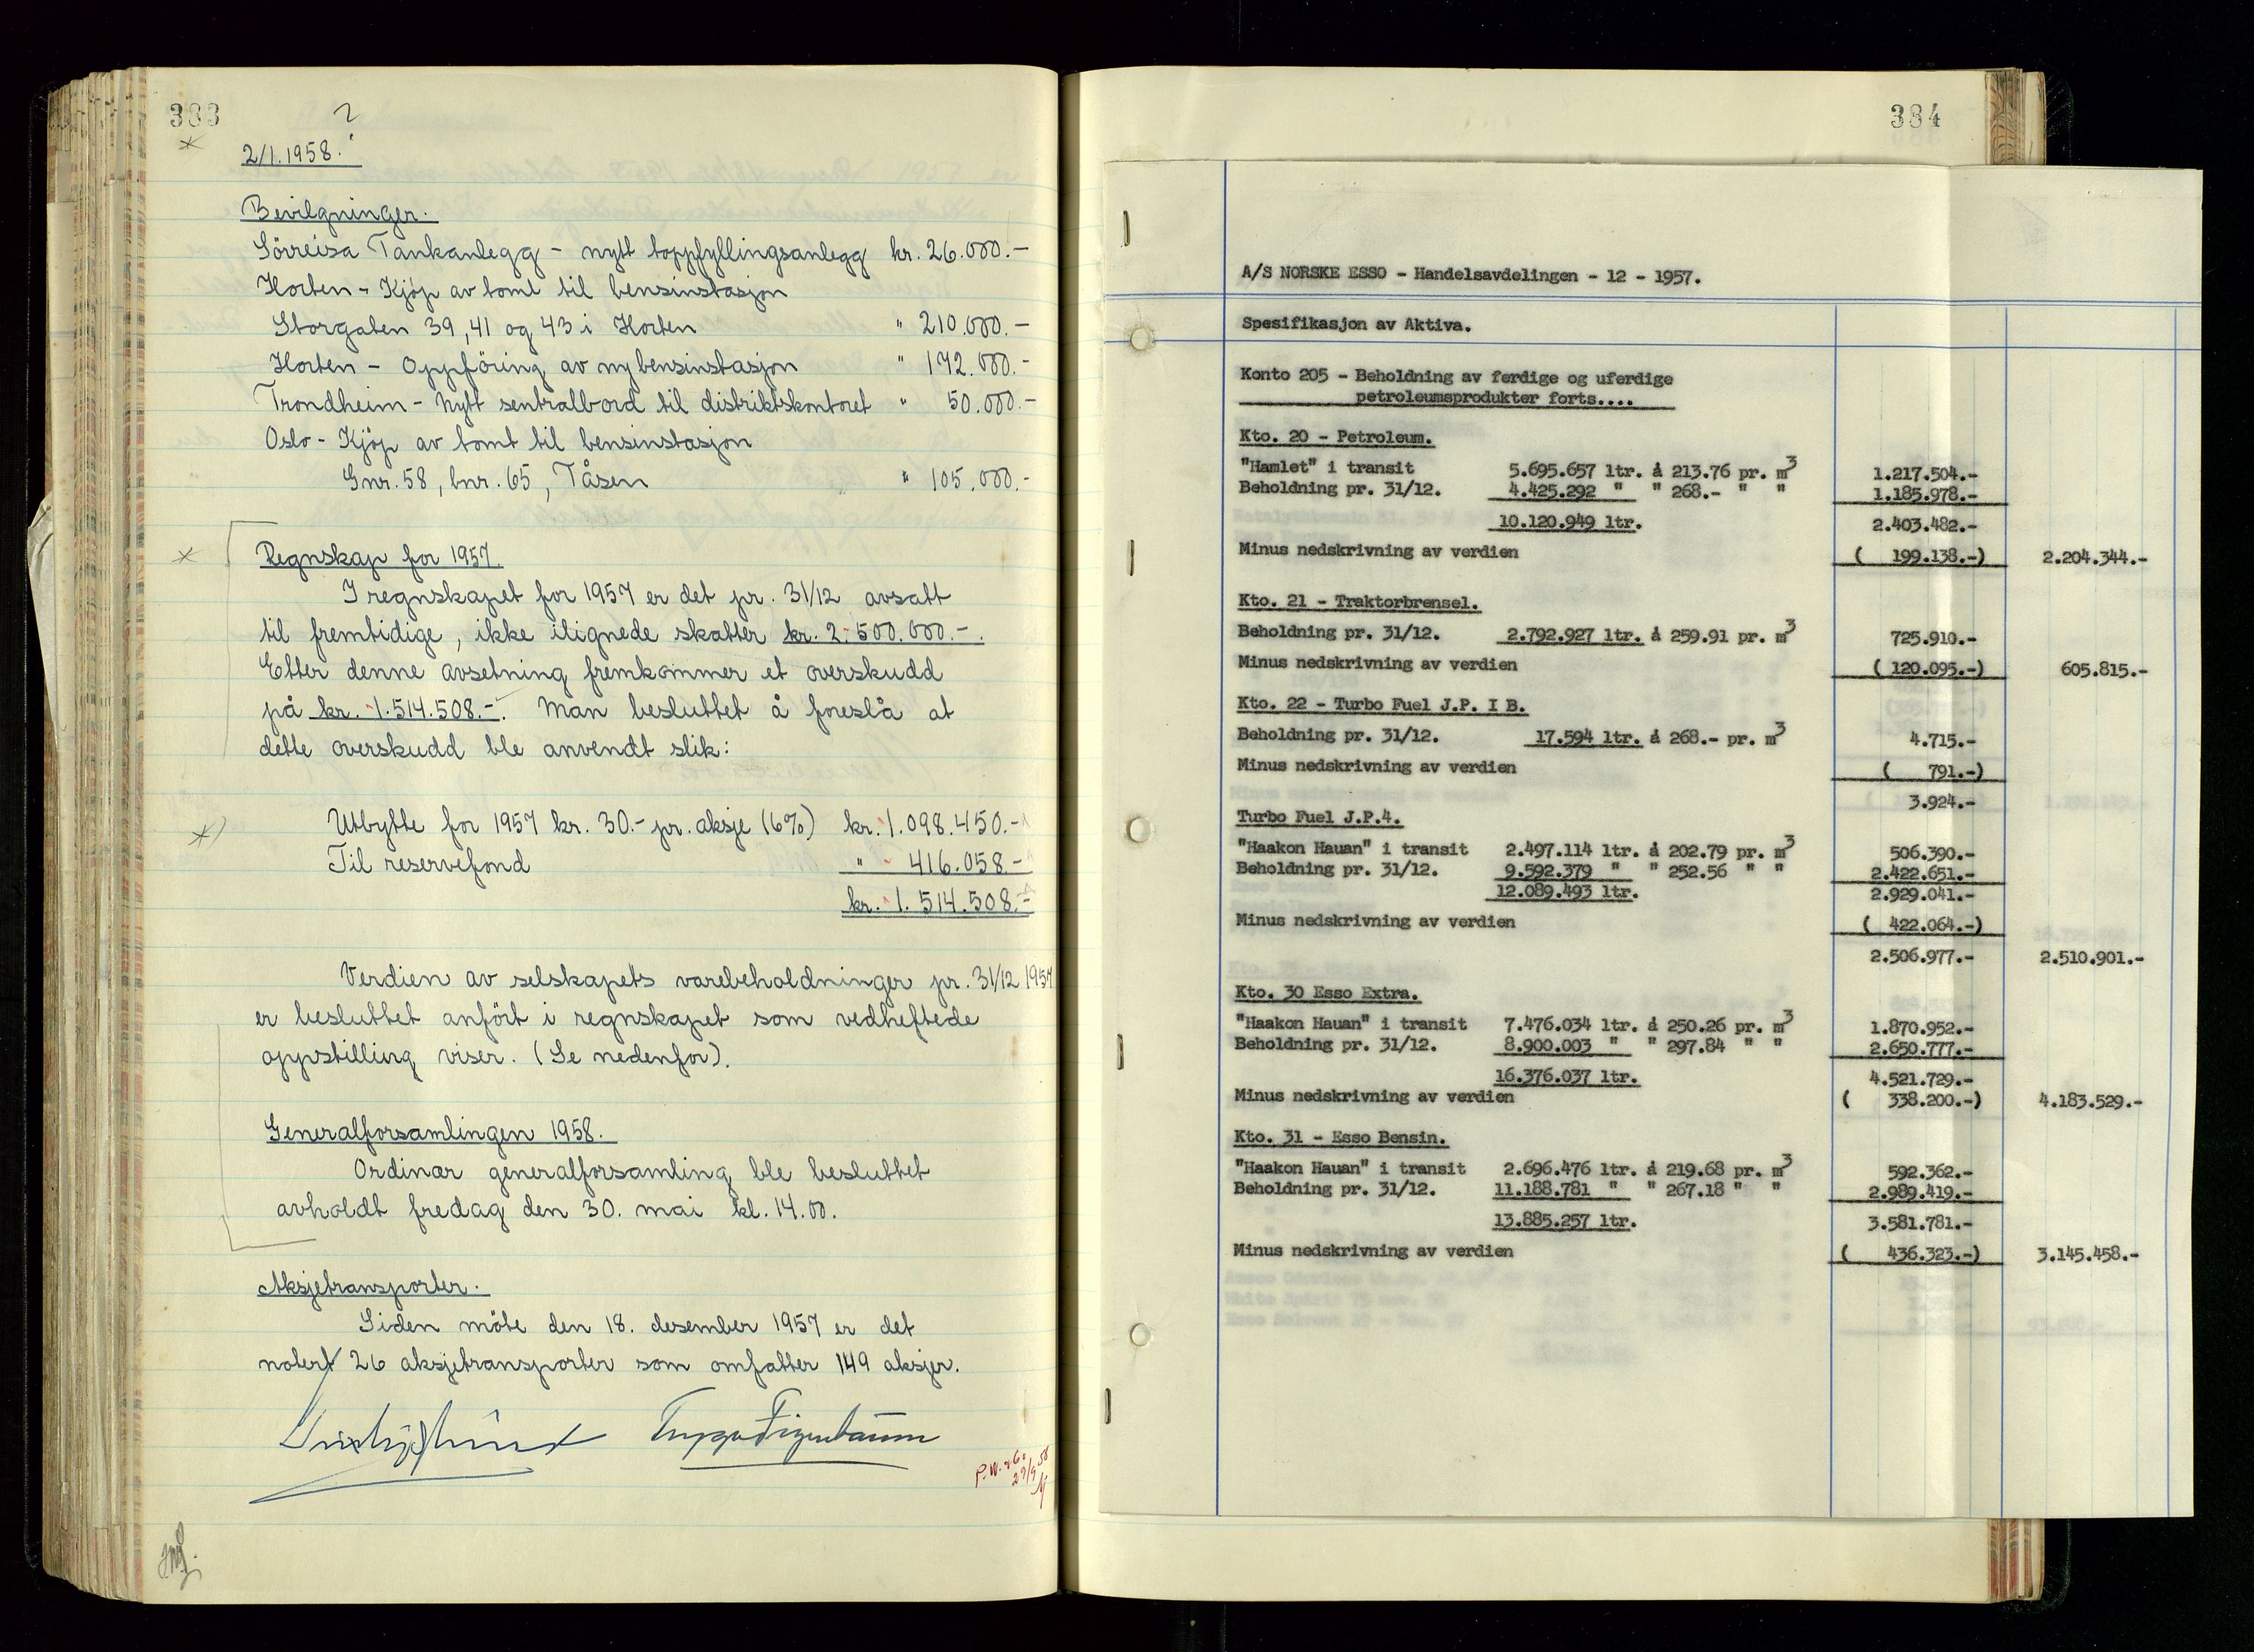 383
2/1.1958.
Bevilgninger.
Sörreisa Tankanlegg - nytt toppfyllingsanlegg kr. 26.000.-
Horten - Kjöp av tomt til bensinstasjon
Storgaten 39, 41 og 43 i Horten " 210.000.-
Horten - Oppföring av ny bensinstasjon " 172.000.-
Trondheim - Nytt sentralbord til distriktskontoret " 50.000.-
Oslo - Kjöp av tomt til bensinstasjon
Gnr. 58, bnr. 65, Tåsen " 105.000.-
Regnskap for 1957.
I regnskapet for 1957 er det pr. 31/12 avsatt
til fremtidige, ikke ilignede skatter kr. 2.500.000.-.
Etter denne avsetning fremkommer et overskudd
på kr. 1.514.508.-. Man besluttet å foreslå at
dette overskudd ble anvendt slik:
Utbytte for 1957 kr. 30.- pr. aksje (6%) kr. 1.098.450.-
Til reservefond " 416.058.-
kr. 1.514.508.-
Verdien av selskapets varebeholdninger pr. 31/12 1957
er besluttet anfört i regnskapet som vedheftede
oppstilling viser. (Se nedenfor).
Generalforsamlingen 1958.
Ordinær generalforsamling ble besluttet
avholdt fredag den 30. mai kl. 14.00.
Aksjetransporter.
Siden möte den 18. desember 1957 er det
notert 26 aksjetransporter som omfatter 149 aksjer.
384
A/S NORSKE ESSO - Handelsavdelingen - 12 - 1957.
Spesifikasjon av Aktiva.
Konto 205 - Beholdning av ferdige og uferdige
petroleumsprodukter forts....
Kto. 20 - Petroleum.
"Hamlet" i transit 5.695.657 ltr. á 213.76 pr. m3 1.217.504.-
Beholdning pr. 31/12. 4.425.292 " " 268.- " " 1.185.978.-
10.120.949 ltr. 2.403.482.-
Minus nedskrivning av verdien ( 199.138.-) 2.204.344.-
Kto. 21 - Traktorbrensel.
Beholdning pr. 31/12. 2.792.927 ltr. á 259.91 pr. m3 725.910.-
Minus nedskrivning av verdien ( 120.095.-) 605.815.-
Kto. 22 - Turbo Fuel J.P. I B.
Beholdning pr. 31/12. 17.594 ltr. á 268.- pr. m3 4.715.-
Minus nedskrivning av verdien ( 791.-)
3.924.-
Turbo Fuel J.P.4.
"Haakon Hauan" i transit 2.497.114 ltr. á 202.79 pr. m3 506.390.-
Beholdning pr. 31/12. 9.592.379 " " 252.56 " " 2.422.651.-
12.089.493 ltr. 2.929.041.-
Minus nedskrivning av verdien ( 422.064.-)
2.506.977.- 2.510.901.-
Kto. 30 Esso Extra.
"Haakon Hauan" i transit 7.476.034 ltr. á 250.26 pr. m3 1.870.952.-
Beholdning pr. 31/12. 8.900.003 " " 297.84 " " 2.650.777.-
16.376.037 ltr. 4.521.729.-
Minus nedskrivning av verdien ( 338.200.-) 4.183.529.-
Kto. 31 - Esso Bensin.
"Haakon Hauan" i transit 2.696.476 ltr. á 219.68 pr. m3 592.362.-
Beholdning pr. 31/12. 11.188.781 " " 267.18 " " 2.989.419.-
13.885.257 ltr. 3.581.781.-
Minus nedskrivning av verdien ( 436.323.-) 3.145.458.-